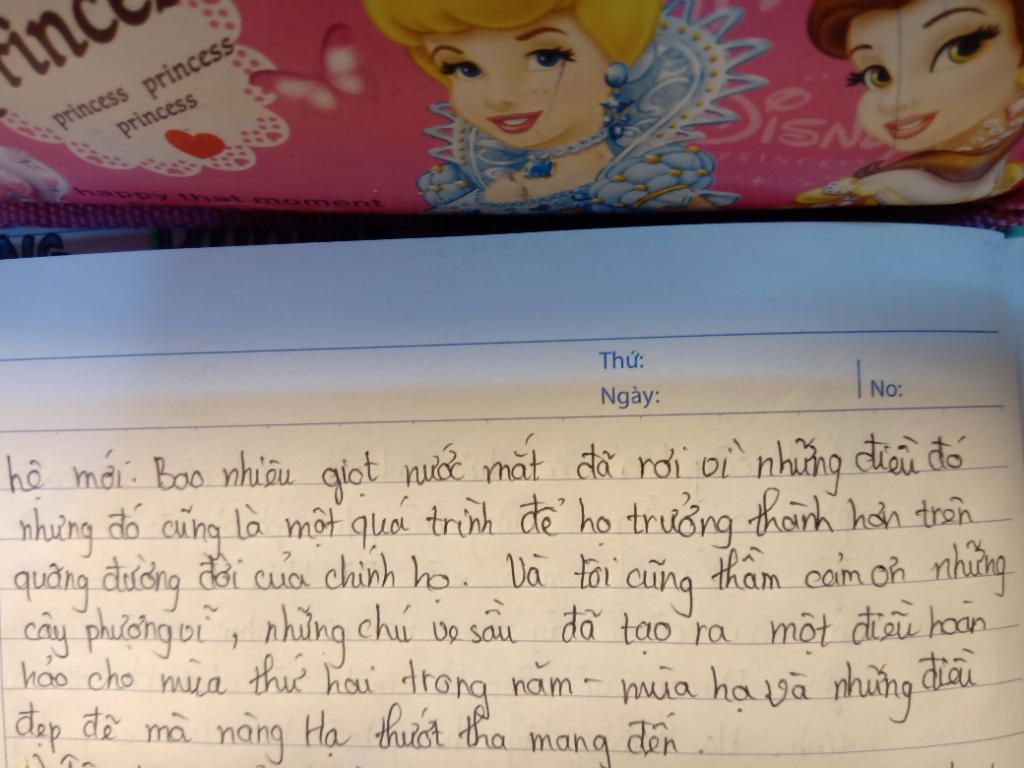 rince
princess princess
princess
DISNE
PRINCESS
happy that moment
Thứ:
Ngày:
No:
hệ mới. Bao nhiêu giọt nước mắt đã rơi vì những điều đó
nhưng đó cũng là một quá trình để họ trưởng thành hơn trên
quãng đường đời của chính họ. Và tôi cũng thầm cảm ơn những
cây phượng vĩ, những chú ve sầu đã tạo ra một điều hoàn
hảo cho mùa thứ hai trong năm - mùa hạ và những điều
đẹp đẽ mà nàng Hạ thướt tha mang đến.